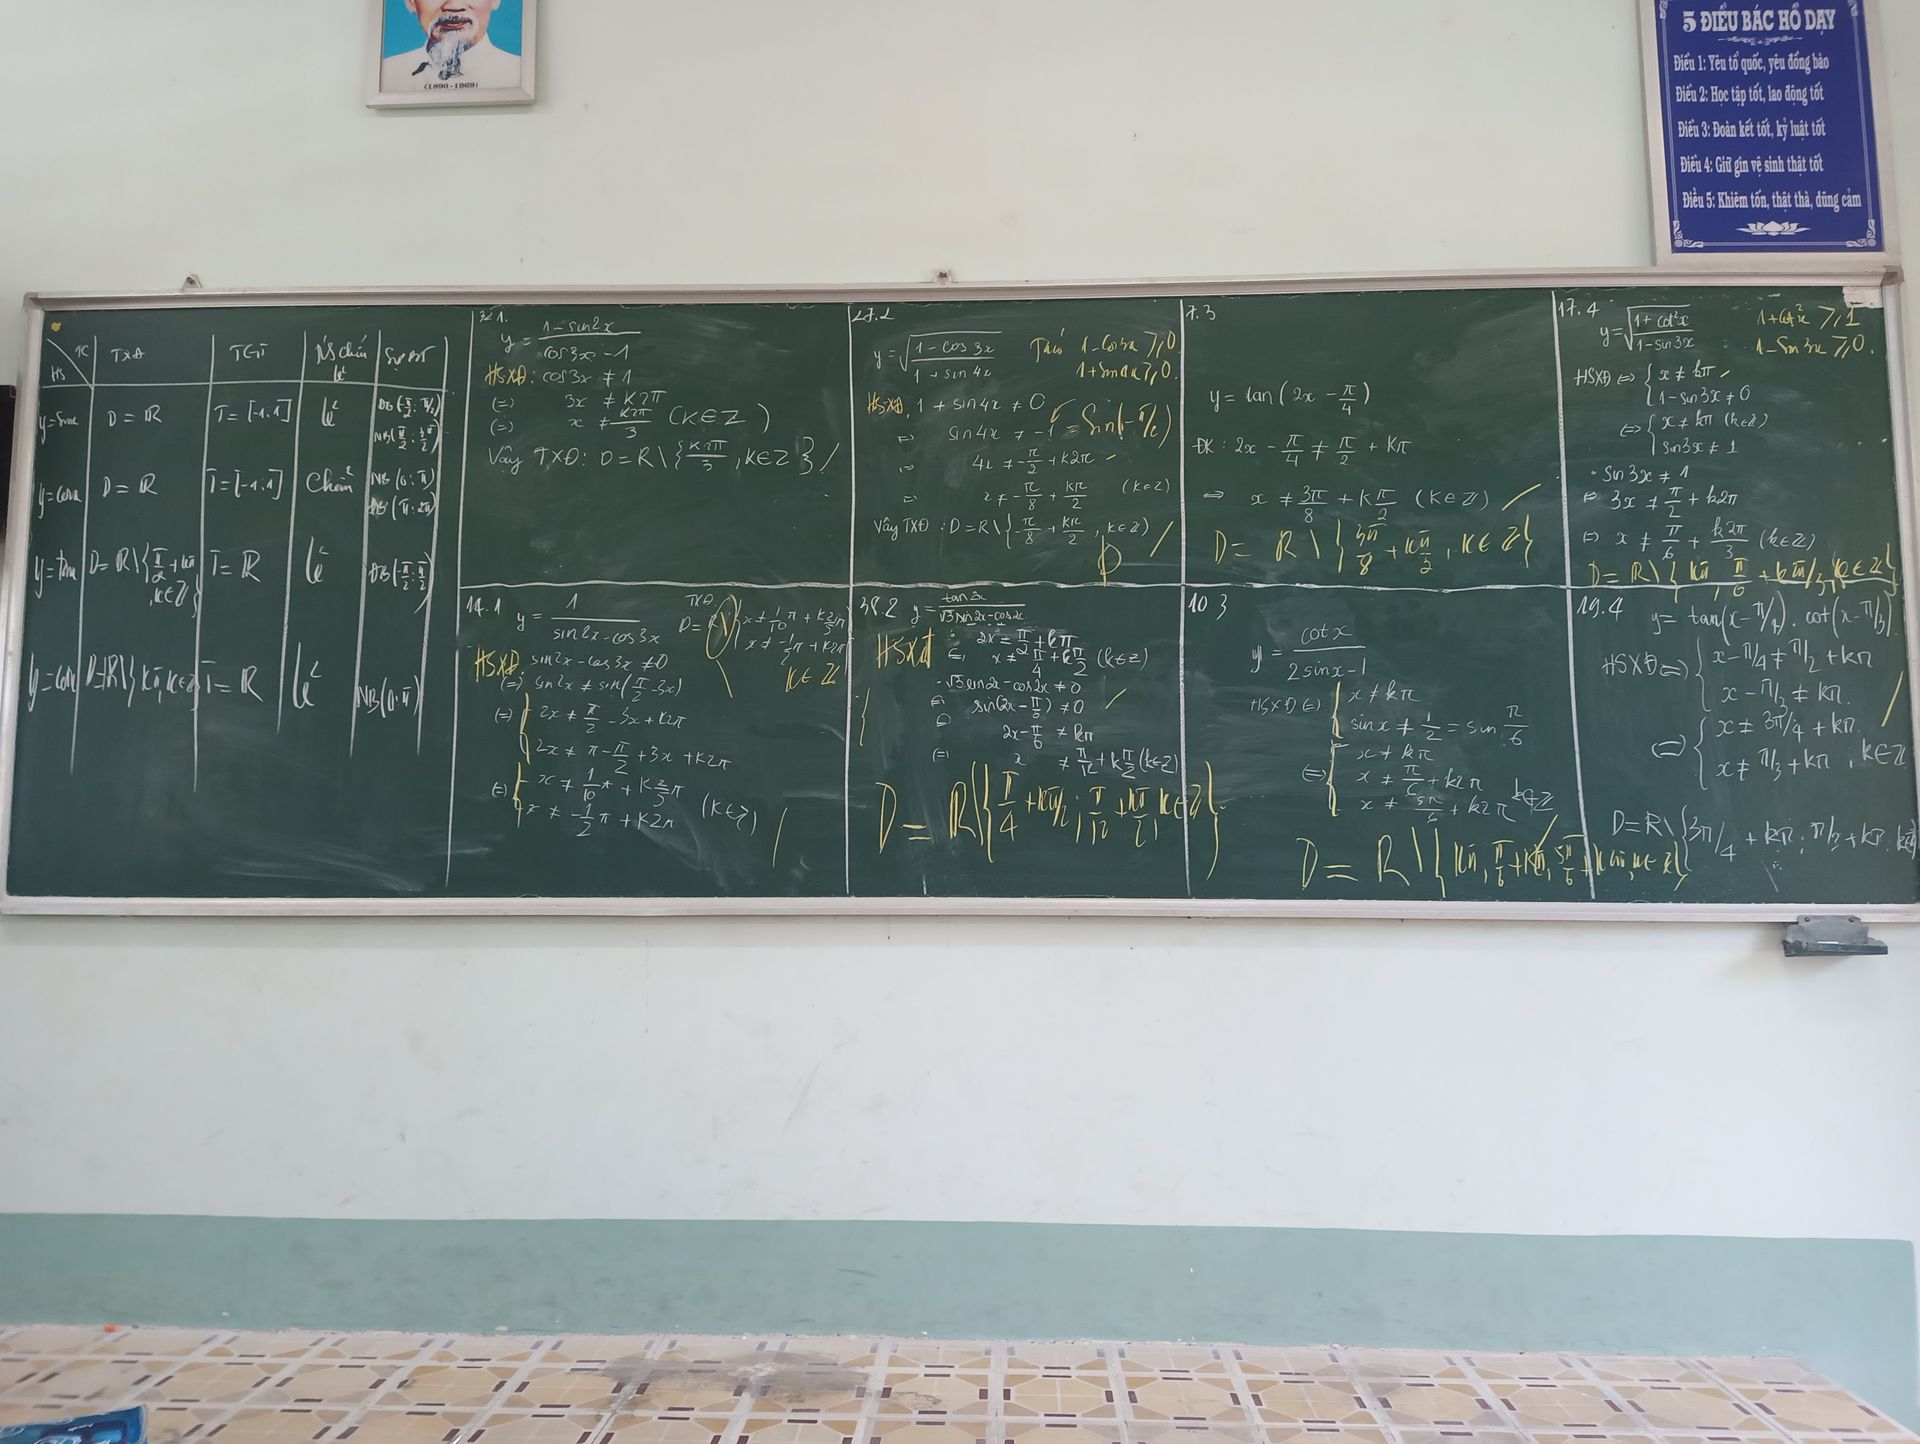 (1890-1969)
5 ĐIỀU BÁC HỒ DẠY
Điều 1: Yêu tổ quốc, yêu đồng bào
Điều 2: Học tập tốt, lao động tốt
Điều 3: Đoàn kết tốt, kỷ luật tốt
Điều 4: Giữ gìn vệ sinh thật tốt
Điều 5: Khiêm tốn, thật thà, dũng cảm
HS TXĐ TGT
y=sinx D = ℝ T=[-1;1] lẻ
y=cosx D = ℝ T=[-1;1] chẵn NB(0;π) ĐB(π;2π)
y=tanx D=ℝ\{π/2+kπ, k∈Z} T=ℝ lẻ ĐB(-π/2;π/2)
y=cotx D=ℝ\{kπ, k∈Z} T=ℝ lẻ NB(0;π)
y = (1-sin2x)/(cos3x-1)
HSXĐ: cos3x ≠ 1
(=) 3x ≠ K2π
(=) x ≠ K2π/3 (K∈Z)
Vậy TXĐ: D=R\{K2π/3, K∈Z}
27.2
y = √((1-cos3x)/(1+sin4x)) Ta có 1-cos3x ⩾0
1+sin4x⩾0.
HSXĐ. 1+sin4x ≠ 0
⇔ sin4x ≠ -1 = Sin(-π/2)
⇔ 4x ≠ -π/2 + k2π
⇔ x ≠ -π/8 + kπ/2 (k∈Z)
Vậy TXĐ: D=R\{-π/8 + kπ/2, k∈Z}
7.3
y = tan(2x - π/4)
ĐK: 2x - π/4 ≠ π/2 + kπ
⇔ x ≠ 3π/8 + kπ/2 (k∈Z)
D = R\{3π/8 + kπ/2, k∈Z}
17.4
y=√((1+cot²x)/(1-sin3x)) 1+cot²x ⩾1
1-Sin3x ⩾0.
HSXĐ ⇔ { x ≠ kπ
1-sin3x ≠ 0
⇔ { x ≠ kπ (k∈Z)
sin3x ≠ 1
· sin3x ≠ 1
⇔ 3x ≠ π/2 + k2π
⇔ x ≠ π/6 + k2π/3 (k∈Z)
D=R\{kπ, π/6 + k2π/3, k∈Z}
14.1 y = 1/(sin2x-cos3x)
TXĐ
D=R\{x ≠ 1/10π + k2/5π
x ≠ -1/2π + k2π
k∈Z}
HSXĐ: sin2x-cos3x ≠0
(=) sin2x ≠ sin(π/2-3x)
(=) { 2x ≠ π/2 - 3x + k2π
2x ≠ π-π/2 + 3x + k2π
(=) { x ≠ 1/10π + k2/5π
x ≠ -1/2π + k2π (k∈Z)
38.2 y=tan2x/(√3sin2x-cos2x)
HSXĐ · 2x = π/2 + kπ
⇔ x ≠ π/4 + kπ/2 (k∈Z)
· √3sin2x-cos2x ≠ 0
⇔ sin(2x-π/6) ≠ 0
⇔ 2x-π/6 ≠ kπ
(=) x ≠ π/12 + kπ/2 (k∈Z)
D = R\{π/4 + kπ/2; π/12 + kπ/2, k∈Z}
10 3
y = cotx/(2sinx-1)
HSXĐ ⇔ { x ≠ kπ
sinx ≠ 1/2 = sin π/6
⇔ { x ≠ kπ
x ≠ π/6 + k2π
x ≠ 5π/6 + k2π k∈Z
19.4 y= tan(x-π/4). cot(x-π/3)
HSXĐ ⇔ { x-π/4 ≠ π/2 + kπ
x-π/3 ≠ kπ.
⇔ { x ≠ 3π/4 + kπ.
x ≠ π/3 + kπ , k∈Z
D=R\{3π/4 + kπ; π/3 + kπ, k∈Z}